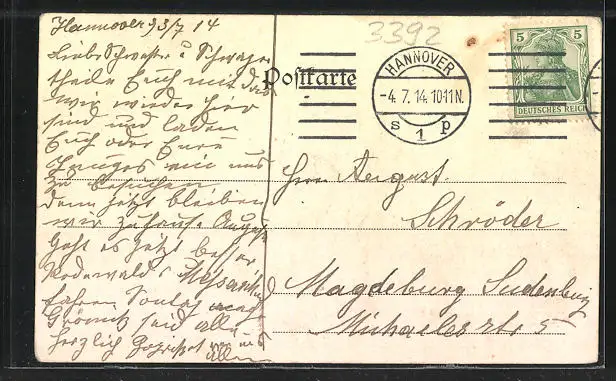 Hannover 3/7 14
Liebe Schwester u Schwager
theile Euch mit das
wir wieder hier
sind und laden
Euch oder Eure
Jungens ein uns
zu besuchen
denn jetzt bleiben
wir zuhause August
geht es jetzt besser
Rodewalds
fahren Sontag nach
sind alle
herzlich gegrüßt von uns
allen
3392
Postkarte
HANNOVER
-4.7.14.10-11N.
s 1 p
5 5
DEUTSCHES REICH
Herrn August
Schröder
Magdeburg Sudenburg
Michaelesstr 5